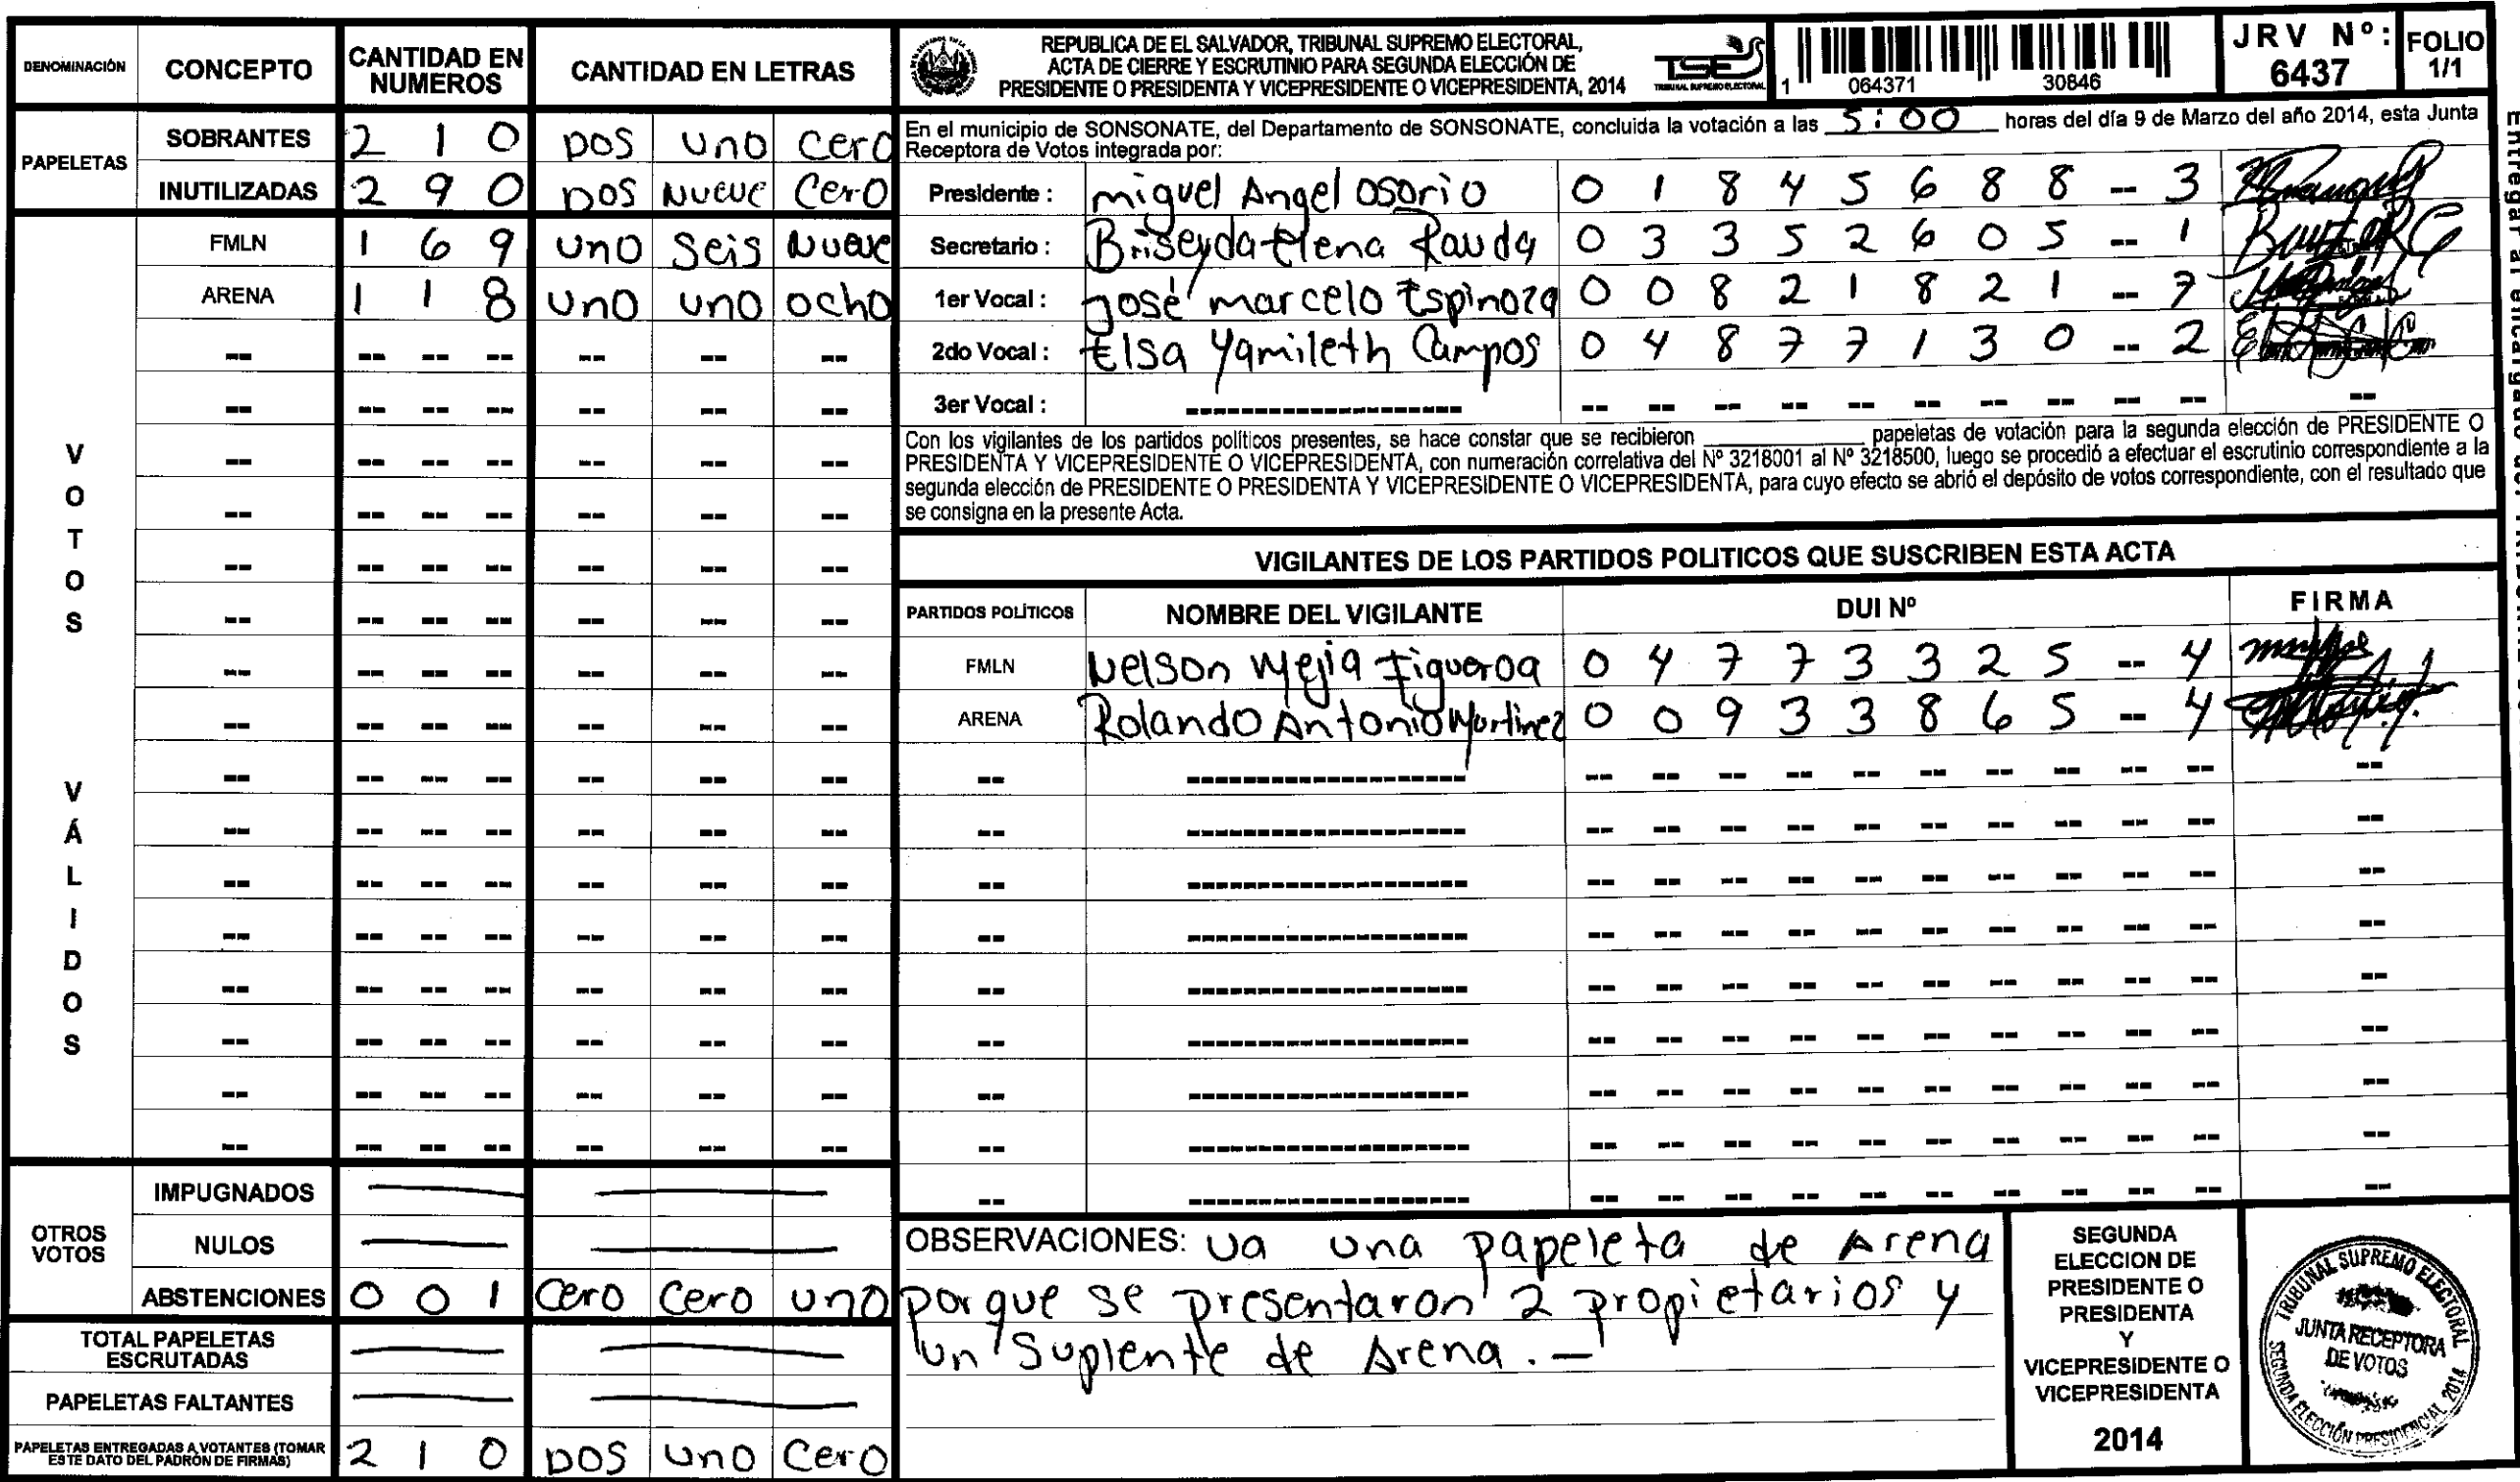 DENOMINACIÓN CONCEPTO CANTIDAD EN NUMEROS CANTIDAD EN LETRAS
PAPELETAS
SOBRANTES 2 1 0 DOS uno cero
INUTILIZADAS 2 9 0 DOS Nueve cero
VOTOS VÁLIDOS
FMLN 1 6 9 uno seis Nueve
ARENA 1 1 8 uno uno ocho
OTROS VOTOS
IMPUGNADOS
NULOS
ABSTENCIONES 0 0 1 cero cero uno
TOTAL PAPELETAS ESCRUTADAS
PAPELETAS FALTANTES
PAPELETAS ENTREGADAS A VOTANTES (TOMAR ESTE DATO DEL PADRÓN DE FIRMAS) 2 1 0 DOS uno cero
REPUBLICA DE EL SALVADOR, TRIBUNAL SUPREMO ELECTORAL,
ACTA DE CIERRE Y ESCRUTINIO PARA SEGUNDA ELECCIÓN DE
PRESIDENTE O PRESIDENTA Y VICEPRESIDENTE O VICEPRESIDENTA, 2014
TSE
TRIBUNAL SUPREMO ELECTORAL
1 064371 30846
JRV Nº: 6437
FOLIO 1/1
En el municipio de SONSONATE, del Departamento de SONSONATE, concluida la votación a las 5:00 horas del día 9 de Marzo del año 2014, esta Junta
Receptora de Votos integrada por:
Presidente : miguel Angel Osorio 0 1 8 4 5 6 8 8 -- 3
Secretario : Briseyda Elena Rauda 0 3 3 5 2 6 0 5 -- 1
1er Vocal : José marcelo Espinoza 0 0 8 2 1 8 2 1 -- 7
2do Vocal : Elsa Yamileth Campos 0 4 8 7 7 1 3 0 -- 2
3er Vocal :
Con los vigilantes de los partidos políticos presentes, se hace constar que se recibieron ________ papeletas de votación para la segunda elección de PRESIDENTE O
PRESIDENTA Y VICEPRESIDENTE O VICEPRESIDENTA, con numeración correlativa del Nº 3218001 al Nº 3218500, luego se procedió a efectuar el escrutinio correspondiente a la
segunda elección de PRESIDENTE O PRESIDENTA Y VICEPRESIDENTE O VICEPRESIDENTA, para cuyo efecto se abrió el depósito de votos correspondiente, con el resultado que
se consigna en la presente Acta.
VIGILANTES DE LOS PARTIDOS POLITICOS QUE SUSCRIBEN ESTA ACTA
PARTIDOS POLÍTICOS NOMBRE DEL VIGILANTE DUI Nº FIRMA
FMLN Nelson Mejia Figueroa 0 4 7 7 3 3 2 5 -- 4
ARENA Rolando Antonio Martinez 0 0 9 3 3 8 6 5 -- 4
OBSERVACIONES: va una papeleta de Arena
porque se presentaron 2 propietarios y
un Suplente de Arena. –
SEGUNDA
ELECCION DE
PRESIDENTE O
PRESIDENTA
Y
VICEPRESIDENTE O
VICEPRESIDENTA
2014
TRIBUNAL SUPREMO ELECTORAL
JUNTA RECEPTORA
DE VOTOS
SEGUNDA ELECCIÓN PRESIDENCIAL 2014
Entregar al encargado del